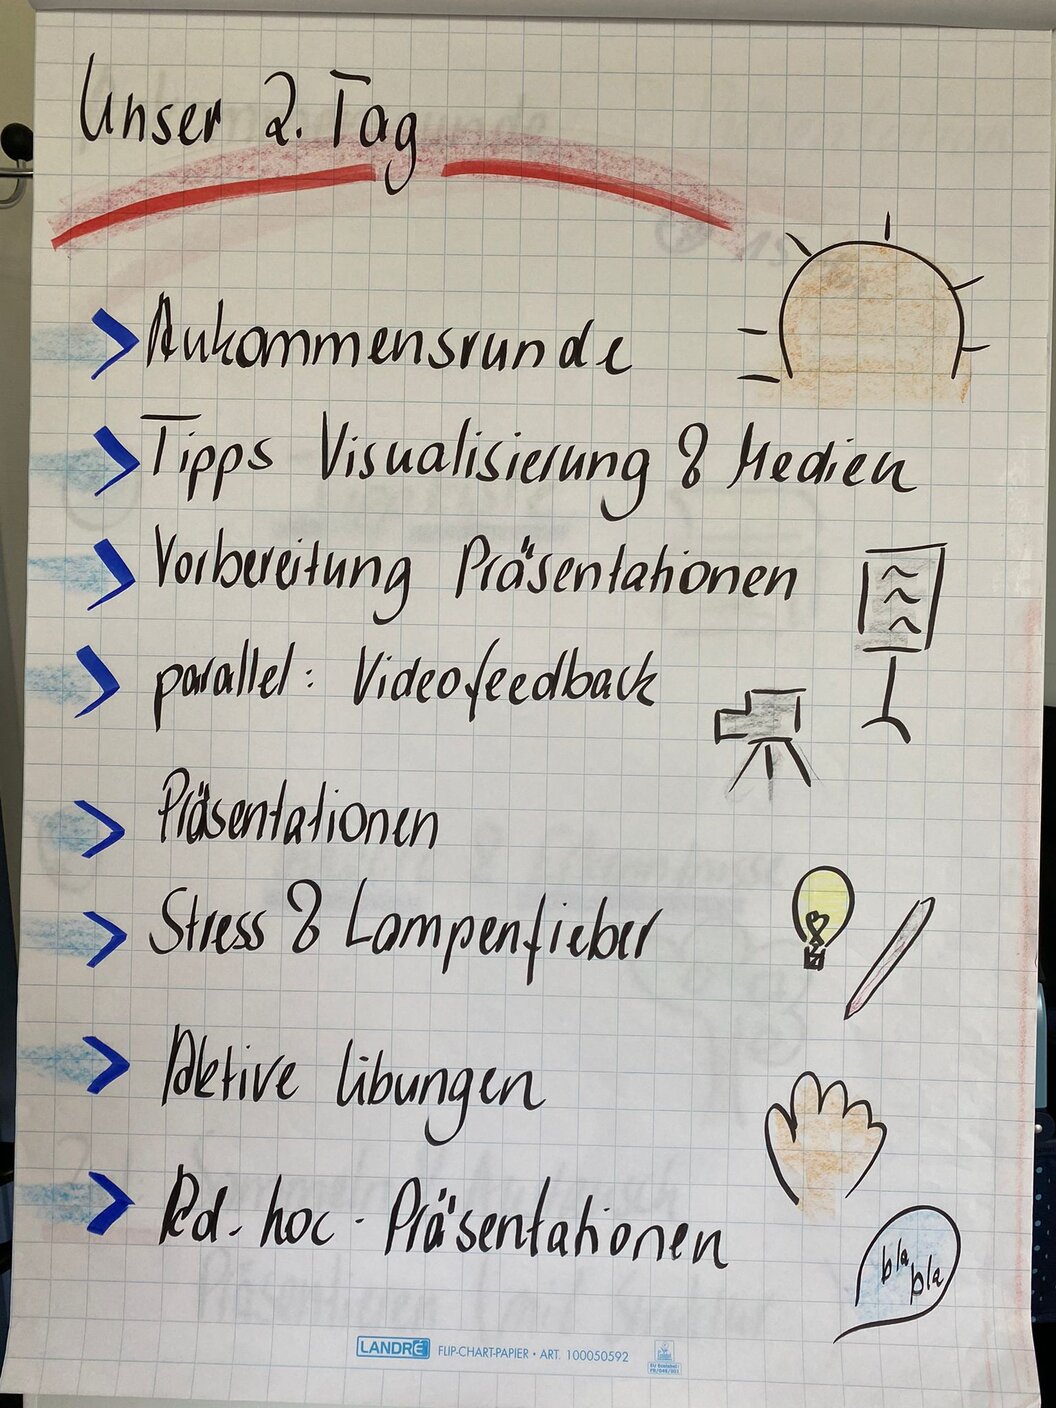 Unser 2. Tag
Ankommensrunde
Tipps Visualisierung & Medien
Vorbereitung Präsentationen
parallel: Videofeedback
Präsentationen
Stress & Lampenfieber
Aktive Übungen
Ad-hoc-Präsentationen
bla
bla
LANDRÉ FLIP-CHART-PAPIER • ART. 100050592